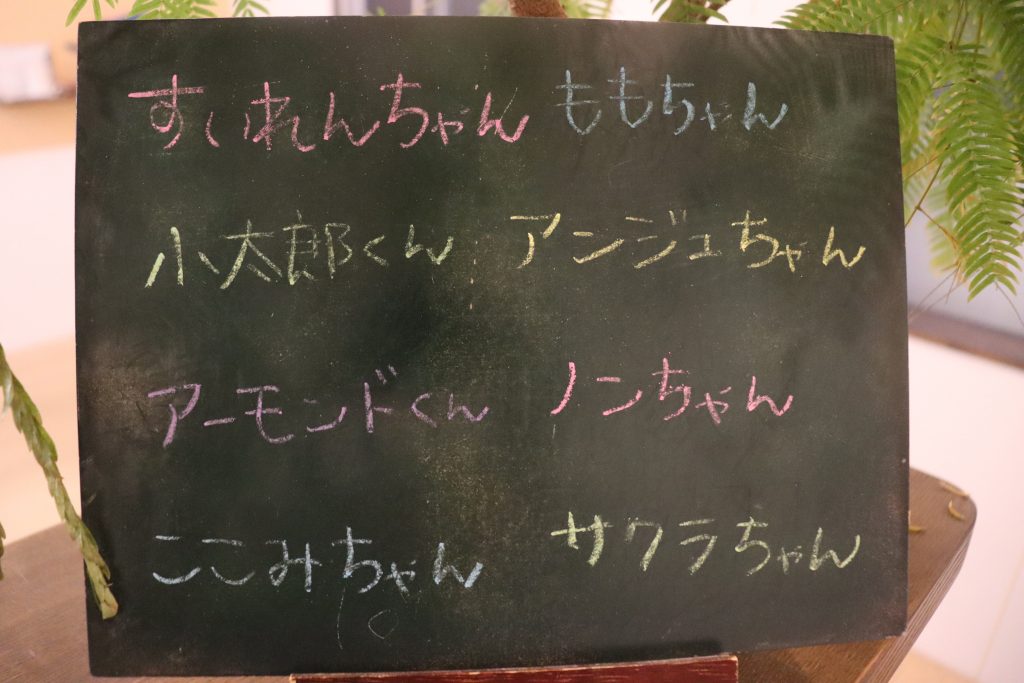 すいれんちゃん ももちゃん
小太郎くん アンジュちゃん
アーモンドくん ノンちゃん
ここみちゃん サクラちゃん